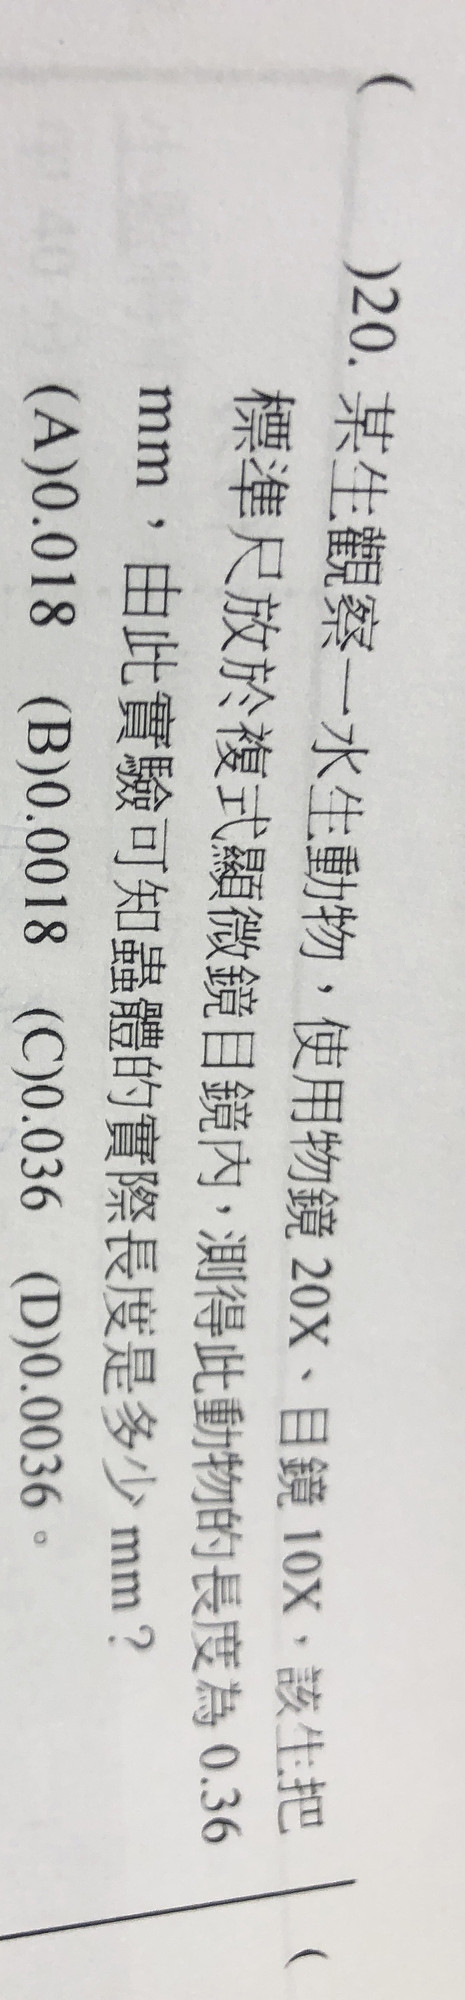 (　　)20. 某生觀察一水生動物，使用物鏡 20X、目鏡 10X，該生把
標準尺放於複式顯微鏡目鏡內，測得此動物的長度為 0.36
mm，由此實驗可知蟲體的實際長度是多少 mm？
(A)0.018 (B)0.0018 (C)0.036 (D)0.0036。
(